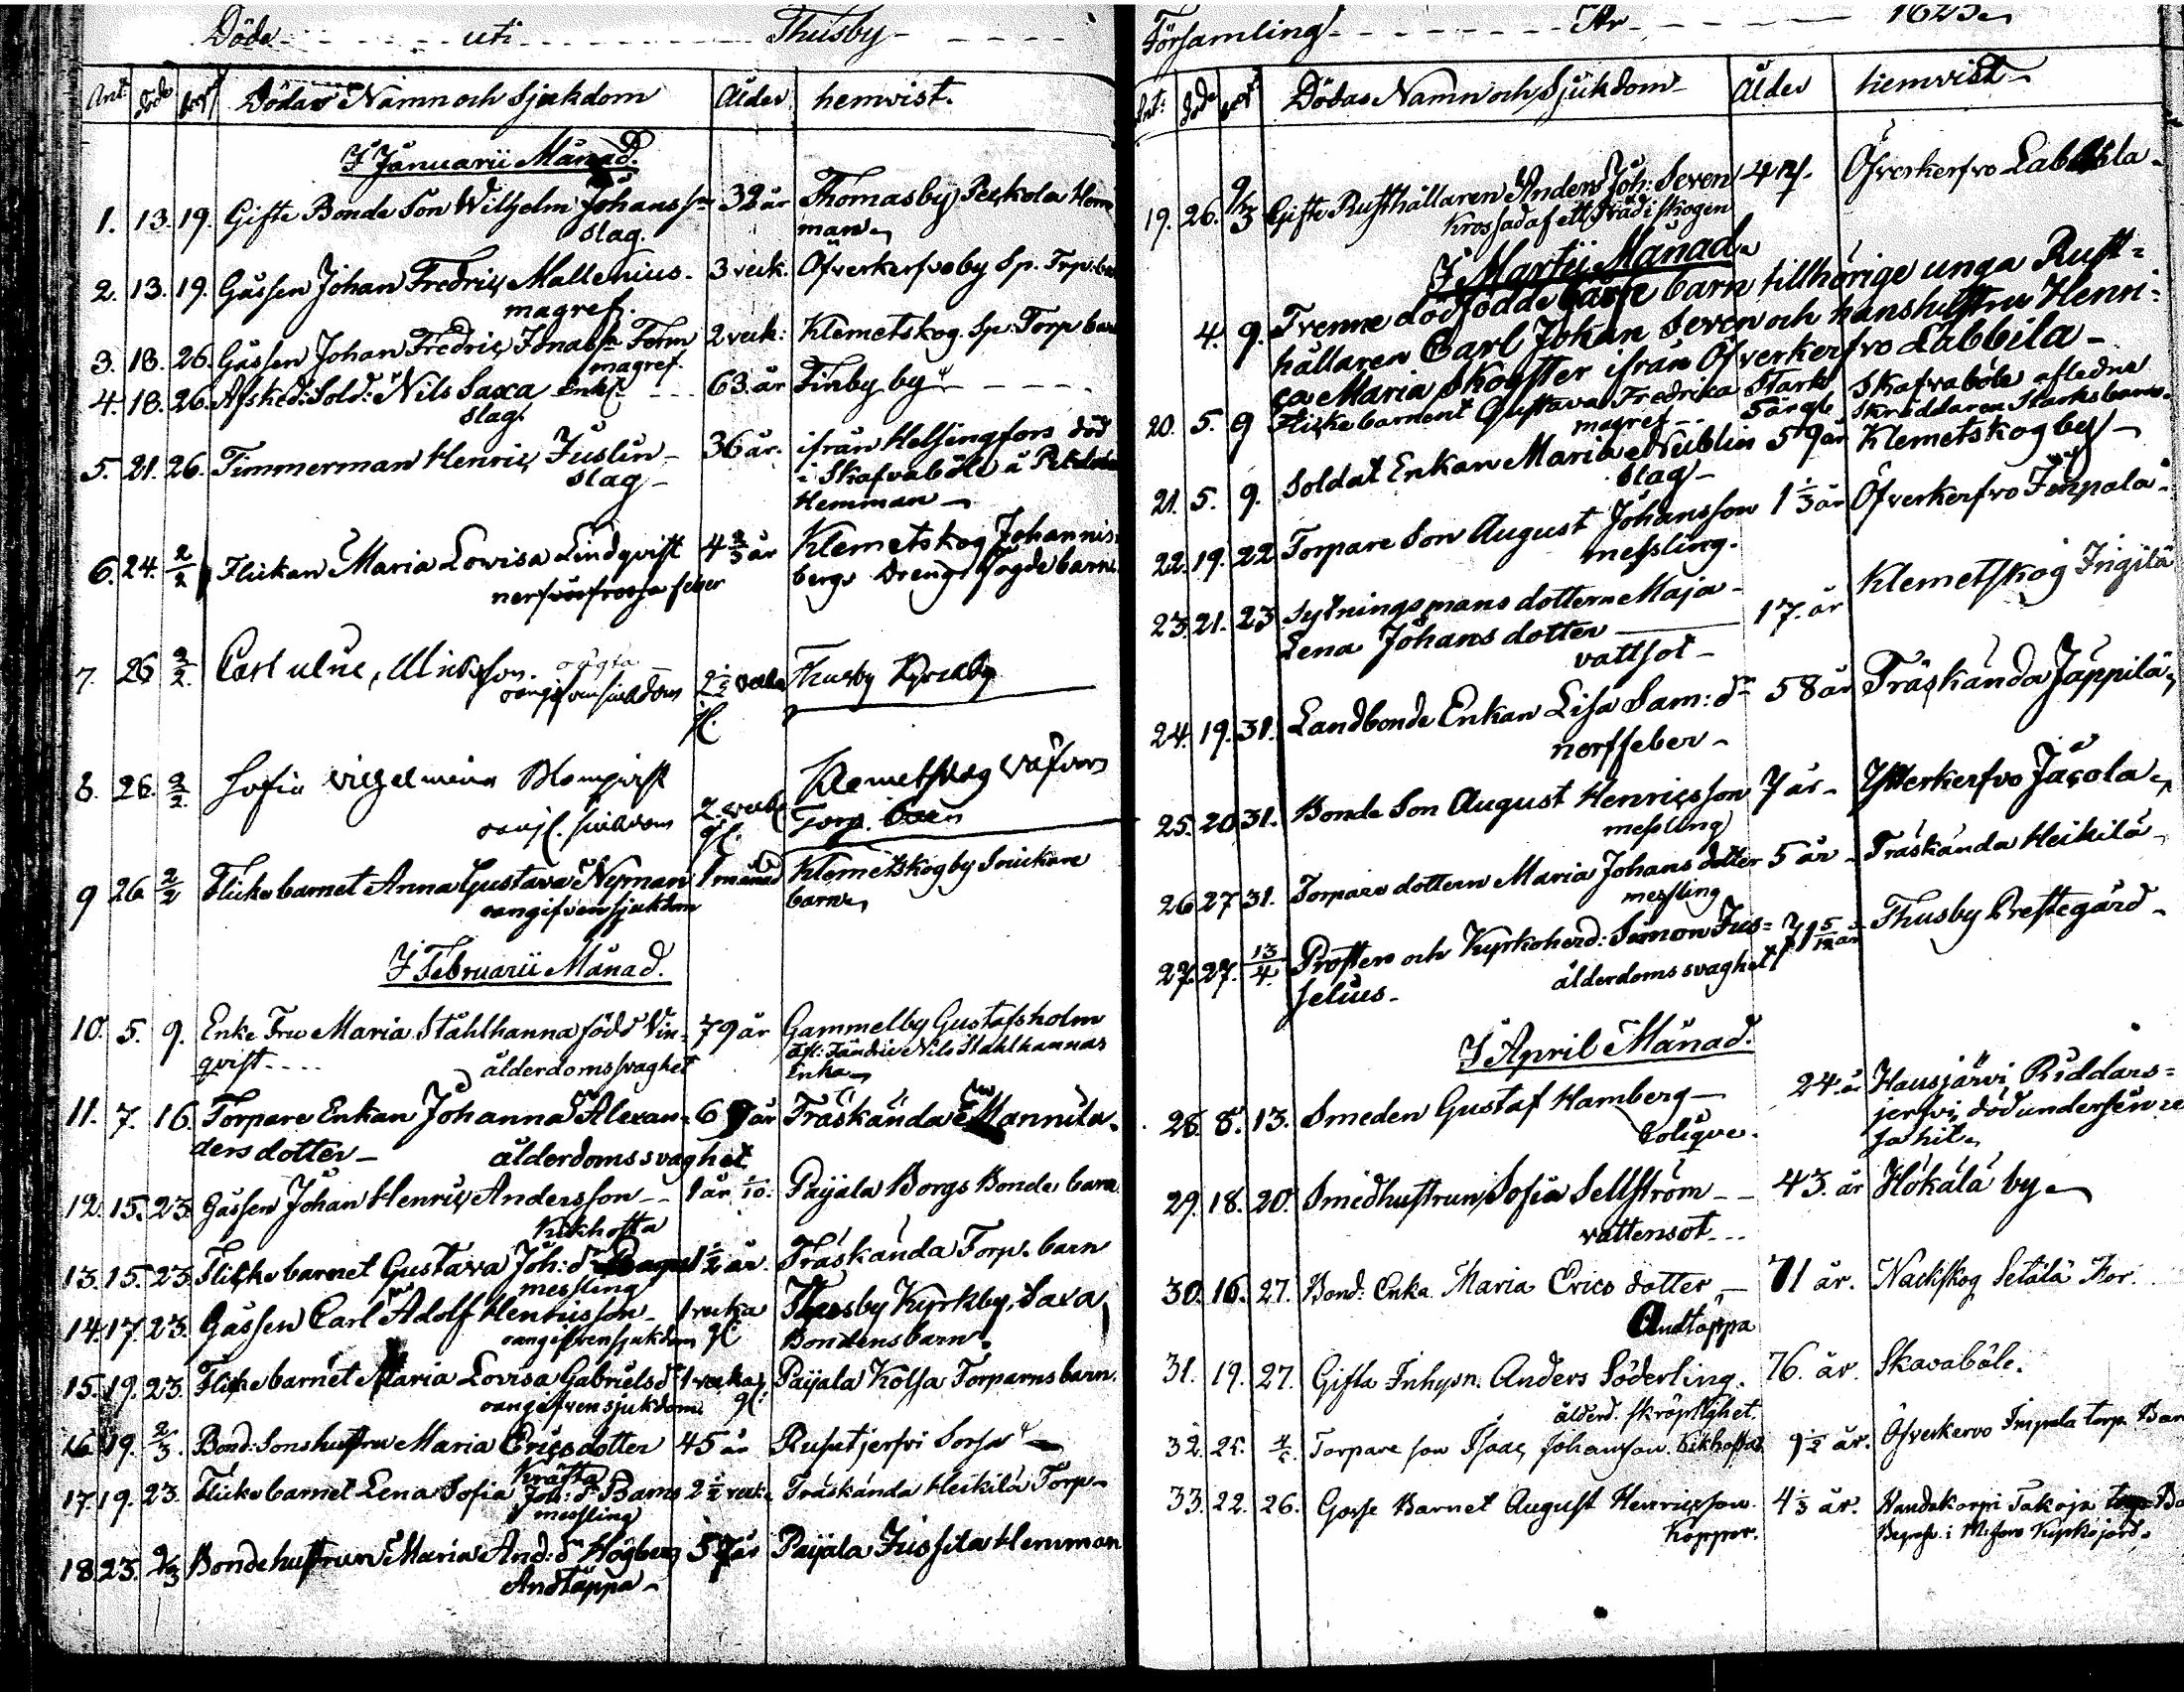 Döde uti Thusby
Ant: död begr Dödas Namn och Sjukdom Ålder hemvist.
I Januarii Månad.
1. 13. 19. Gifte Bonde Son Wilhelm Johansson 32 år Thomasby Peckola Hem
slag. man
2. 13. 19. Gåssen Johan Fredric Mallenius 3 veck. Öfverkerfvoby Sp. Torp. bar
magref.
3. 18. 26. Gåssen Johan Fredric 2 veck: Klemetskog. Sp: Torp bar
magref.
4. 18. 26. Afsked: Sold: Nils Saxa enkl. 63. år Finby by
slag.
5. 21. 26. Timmerman Henric Juslin 36 år. ifrån Helsingfors död
slag i Skafvaböle å
Hemman
6. 24. 2/2 Flickan Maria Lovisa Lindqvist 4 2/3 år Klemetskog Johannis
feber bergs Dreng barn
7. 26 2/2. Carl
oangifven sjukdom 2 1/2 veka Thusby Kyrkby
gl.
8. 26. 2/2. Sofia Vilhelmina Blomqvist Klemetskog
oangf. sjukdom 2. veck Torp. barn
gl.
9 26 2/2 Flicke barnet Anna Gustava Nyman 1 månad Klemetskogby Snickare
oangifven sjukdom barn
I Februarii Månad.
10. 5. 9. Enke Fru Maria Stahlhanna född Vin- 79 år Gammelby Gustafsholm
qvist.... ålderdomssvaghet afl: Fändric Nils Stahlhannas
Enka
11. 7. 16. Torpare Enkan Johanna Alexan- 67 år Träskända Mannila.
ders dotter ålderdomssvaghet
12. 15. 23. Gåssen Johan Henric Andersson 1 år 1/10. Paijala Borgs Bonde barn
Kikhosta
13. 15. 23. Flicke barnet Gustava Joh: dr 1 1/2 år. Träskända Torp. barn
messling
14. 17. 23. Gåssen Carl Adolf Henricsson 1 veka Thusby Kyrkby, Saxa
oangifven sjukdom gl. Bondens barn.
15. 19. 23. Flicke barnet Maria Lovisa Gabriels dr 1 veka Paijala Kolsa Torparns barn.
oangifven sjukdom. gl.
16. 19. 2/3. Bond: Sons hustru Maria Ericsdotter 45 år Rusutjerfvi Sorsa
Kräfta
17. 19. 23. Flicke barnet Lena Sofia Joh: dr Barns 2 1/2 veck. Träskända Heikilä Torp
messling
18. 23. 2/3 Bonde hustrun Maria And: dr Högberg 57 år Paijala Jussila Hemman
Andtäppa
Församling År
Ant: död begr Dödas Namn och Sjukdom Ålder hemvist
19. 26. 2/3 Gifte Rusthållaren Anders Joh: Seven 47. Öfverkerfvo Labbila
Krossad af ett träd i skogen
I Martii Månad.
4. 9. Trenne dödfödde barn tillhörige unga Rust-
hållaren Carl Johan Seven och hans hustru Henri-
ca Maria Skogster ifrån Öfverkerfvo Labbila
20. 5. 9 Flicke barnent Gustava Fredrika Stark 5 år gl. Skafvaböle afledne
magref Skräddaren Starks barn.
21. 5. 9. Soldat Enkan Maria Nublin 59 år Klemetskog by
slag
22. 19. 22 Torpare Son August Johansson 1 1/3 år Öfverkerfvo Jinpala
messling.
23. 21. 23 Sytningsmans dottern Maja 17. år Klemetskog Ingilä
Lena Johans dotter
vattsot
24. 19. 31. Landbonde Enkan Lisa Sam: dr 58 år Träskända Jäppilä
nerffeber
25. 20. 31. Bonde Son August Henricsson 7 år Ytterkerfvo Jäcola
messling
26. 27 31. Torpare dottern Maria Johans dotter 5 år Träskända Heikilä
messling
27. 27. 13/4. Prosten och Kyrkoherd: Simon Jus- 71 5/12 år Thusby Prestegård
selius ålderdoms svaghet
I April Månad.
28. 8. 13. Smeden Gustaf Hamberg 24. år Hausjärvi Riddars-
Colique. jerfvi död under sin re
sa hit
29. 18. 20. Smidhustrun Sofia Sellström 43. år Hökälä by
vattensot
30. 16. 27. Bond: Enka Maria Erics dotter 71 år. Nackskog Setälä
Andtäppa
31. 19. 27. Gifta Inhysn. Anders Söderling. 76. år. Skavaböle.
ålderd. skröplighet.
32. 25. Torpare son Isaac Johansson. Kikhosta 9 1/2 år. Öfverkervo Jinpala torp. Bar
33. 22. 26. Gosse Barnet August Henricsson. 4 1/3 år. Handakorpi Takoja
Koppor. Kyrkojord.